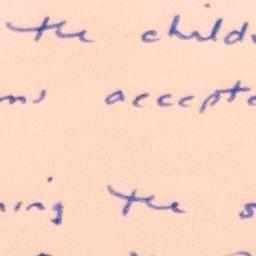 the child
ns accept
ning the s